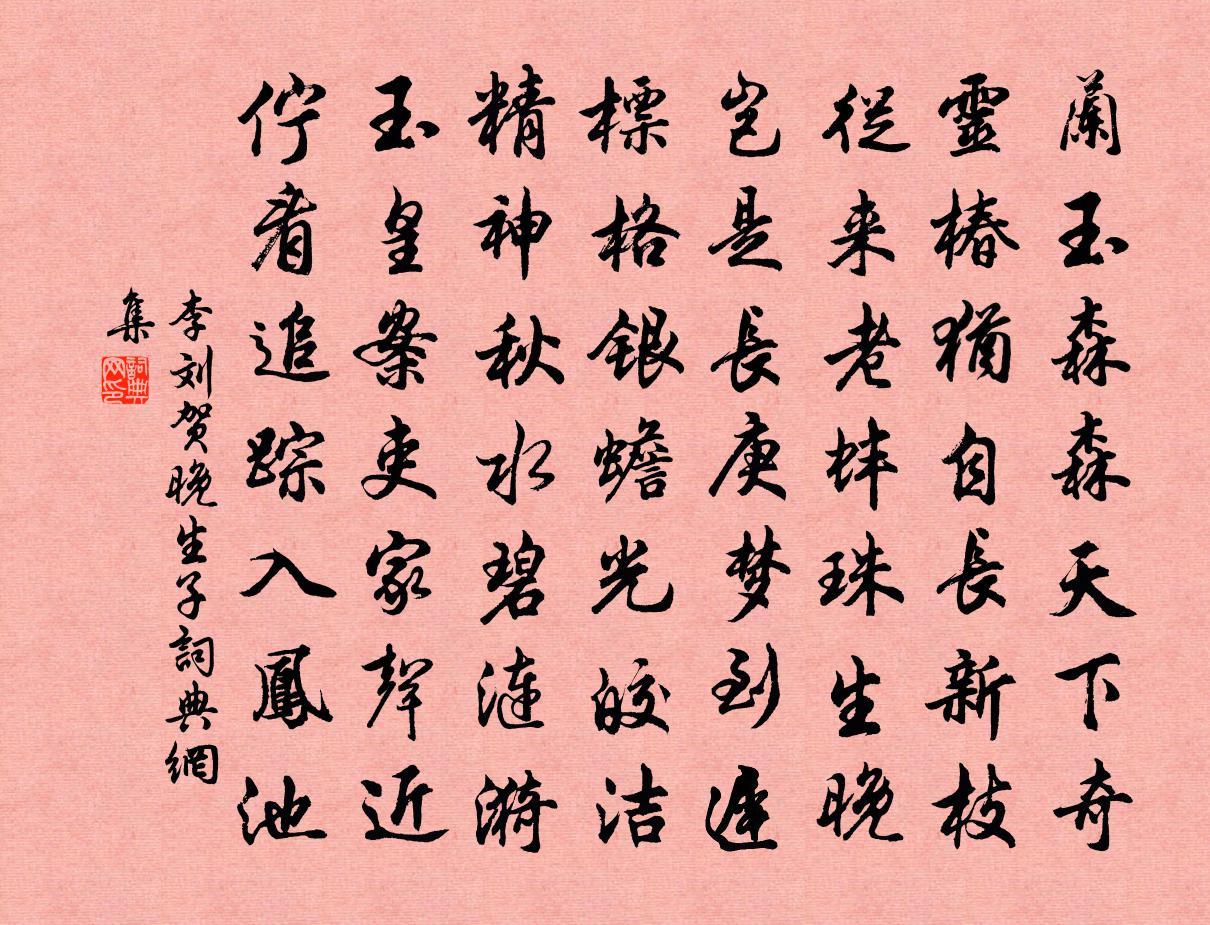 蘭玉森森天下奇
靈椿猶自長新枝
從来老蚌珠生晚
豈是長庚梦到遲
標格銀蟾光皎洁
精神秋水碧漣漪
玉皇案吏家聲近
佇看追踪入鳳池
李刘贺晚生子詞典網
集
詞典
网印